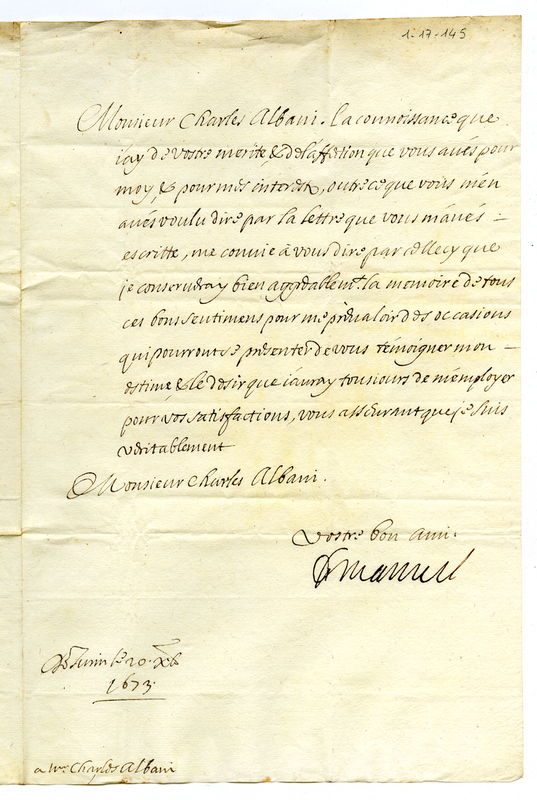 1-17-145
Monsieur Charles Albani. La connoissance que
i'ay de vostre merite & de l'affection que vous avés pour
moy, & pour mes interest, outre ce que vous m'en
avés voulu dire par la lettre que vous m'avés
escritte, me convie à vous dire par cellecy que
je conserveray bien aggréablemt. la memoire de tous
ces bons sentimens pour me prévaloir des occasions
qui pourront se présenter de vous témoigner mon
estime & le desir que i'auray tousiours de m'employer
pour vos satisfactions, vous asseurant que je suis
véritablement
Monsieur Charles Albani.
Vostre bon ami.
Emanuel
De Turin le 20. Xb.
1673.
a Mr. Charles Albani